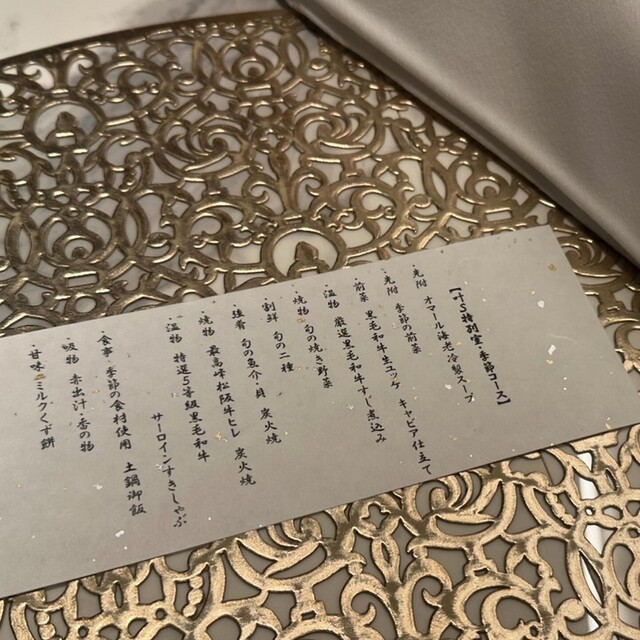 【叶え特別室・季節コース】
・先附 オマール海老冷製スープ
・先附 季節の前菜
・前菜 黒毛和牛生ユッケ キャビア仕立て
・温物 厳選黒毛和牛すじ煮込み
・焼物 旬の焼き野菜
・割鮮 旬の二種
・強肴 旬の魚介・貝 炭火焼
・焼物 最高峰松阪牛ヒレ 炭火焼
・温物 特選5等級黒毛和牛
サーロインすきしゃぶ
・食事 季節の食材使用 土鍋御飯
・吸物 赤出汁・香の物
・甘味 ミルクくず餅